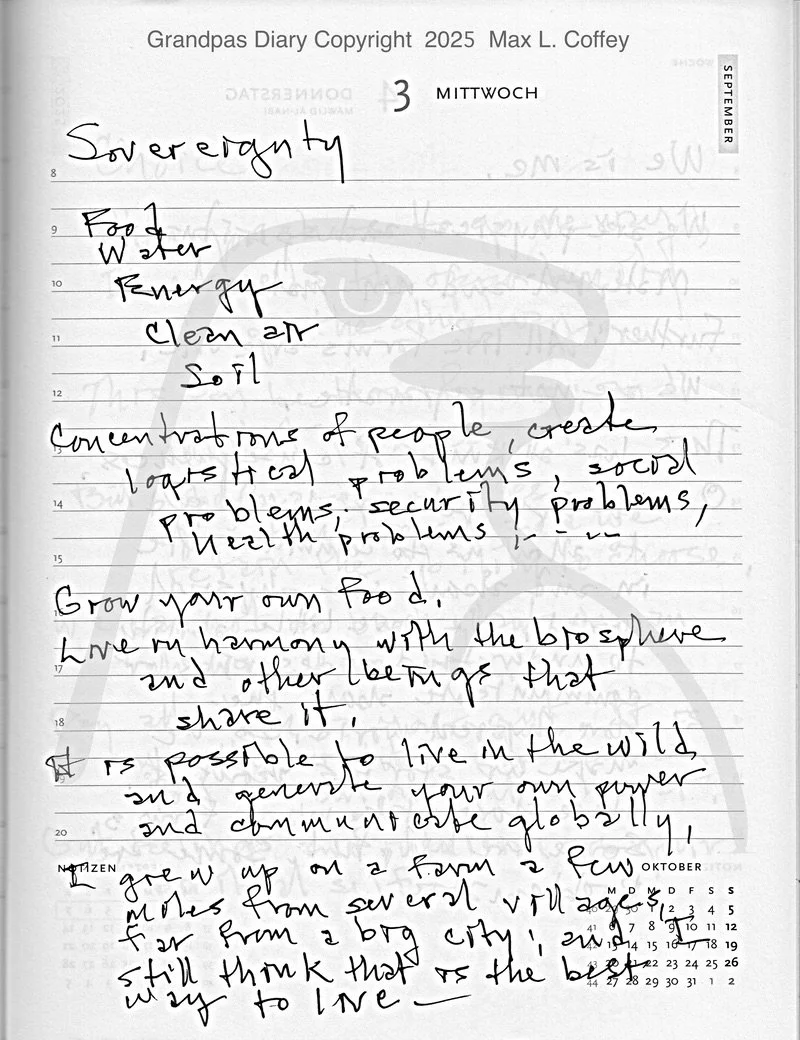 Grandpas Diary Copyright 2025 Max L. Coffey
3 MITTWOCH
SEPTEMBER
Sovereignty
8
Food
9
Water
10
Energy
11
Clean air
Soil
12
Concentrations of people, create
13
logistical problems, social
14
problems, security problems,
Health problems, - - - -
15
Grow your own food.
16
Live in harmony with the biosphere
17
and other beings that
18
share it.
It is possible to live in the wild
19
and generate your own power
20
and communicate globally,
NOTIZEN
OKTOBER
I grew up on a farm a few
miles from several villages,
far from a big city; and I
still think that is the best
way to live —
M D M D F S S
40 29 30 1 2 3 4 5
41 6 7 8 9 10 11 12
42 13 14 15 16 17 18 19
43 20 21 22 23 24 25 26
44 27 28 29 30 31 1 2